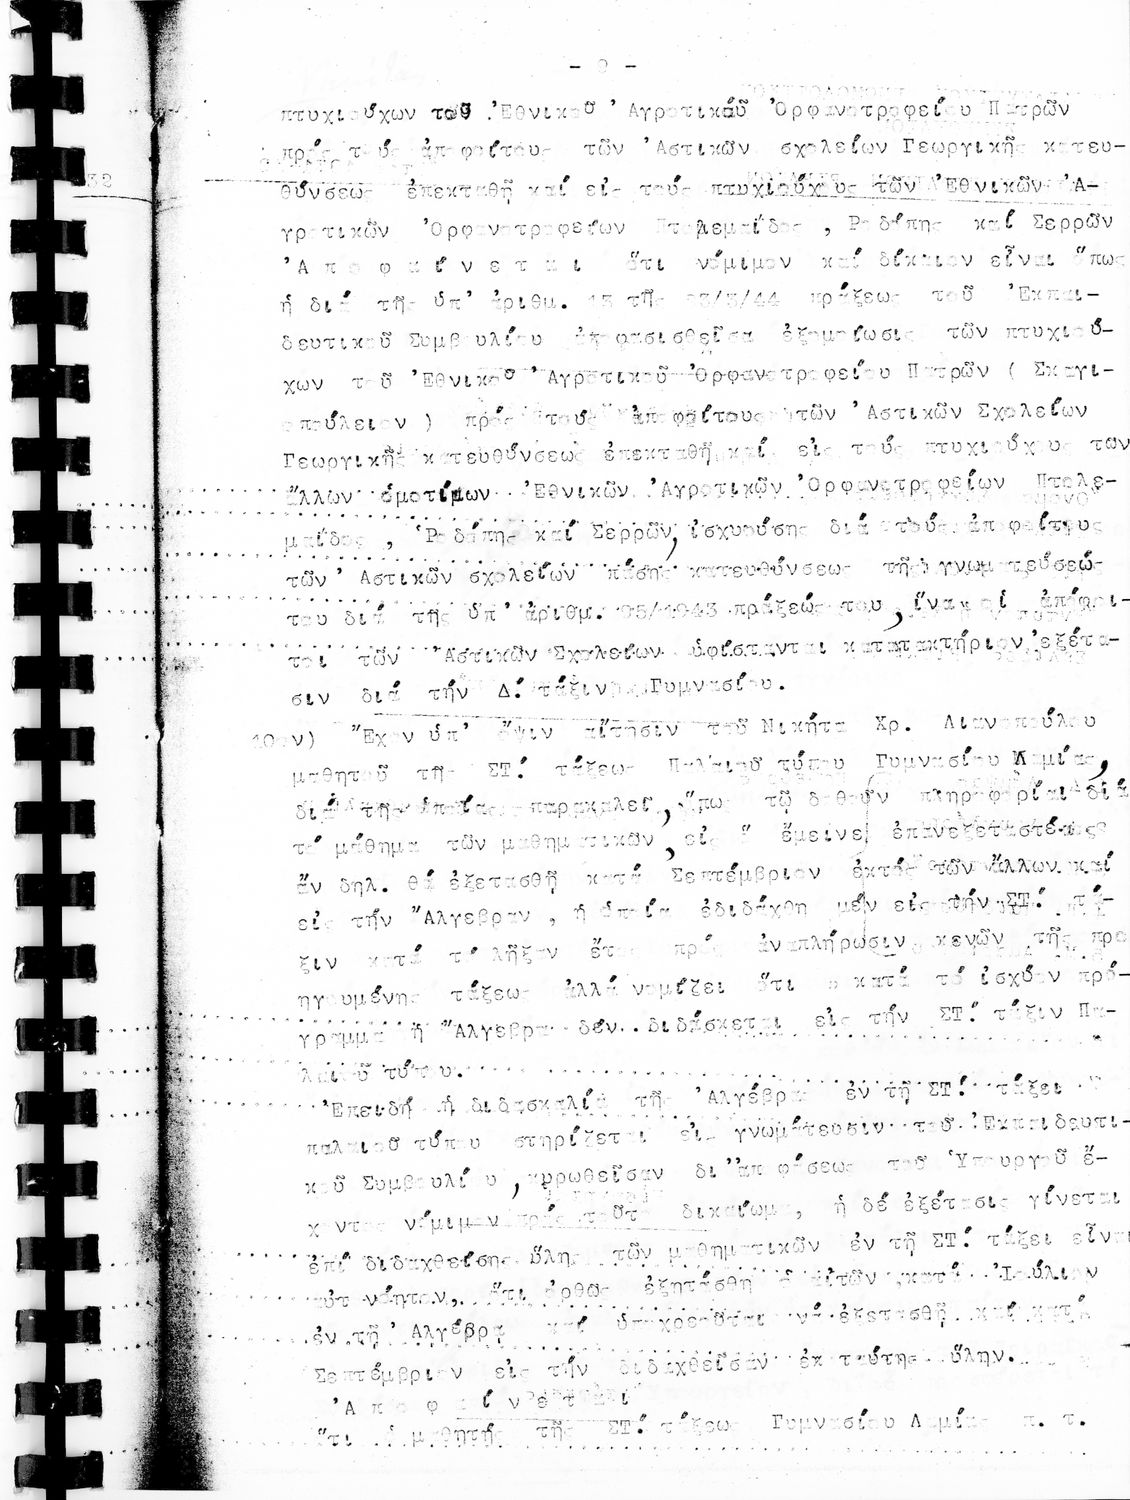 πτυχιούχων τοῦ Ἐθνικοῦ Ἀγροτικοῦ Ὀρφανοτροφείου Πατρῶν
πρός τούς ἀποφοίτους τῶν Ἀστικῶν σχολείων Γεωργικῆς κατευ-
θύνσεως ἐπεκταθῆ καί εἰς τούς πτυχιούχους τῶν Ἐθνικῶν Ἀ-
γροτικῶν Ὀρφανοτροφείων Πτολεμαΐδος , Ροδόπης καί Σερρῶν
Ἀ π ο φ α ί ν ε τ α ι ὅτι νόμιμον καί δίκαιον εἶναι ὅπως
ἡ διά τῆς ὑπ' ἀριθμ. τῆς πράξεως τοῦ Ἐκπαι-
δευτικοῦ Συμβουλίου ἀποφασισθεῖσα ἐξομοίωσις τῶν πτυχιού-
χων τοῦ Ἐθνικοῦ Ἀγροτικοῦ Ὀρφανοτροφείου Πατρῶν ( Σκαγι-
οπούλειον ) πρός τούς ἀποφοίτους τῶν Ἀστικῶν Σχολείων
Γεωργικῆς κατευθύνσεως ἐπεκταθῆ καί εἰς τούς πτυχιούχους των
ἄλλων ὁμοτίμων Ἐθνικῶν Ἀγροτικῶν Ὀρφανοτροφείων Πτολε-
μαΐδος , Ροδόπης καί Σερρῶν, ἰσχυούσης διά τούς ἀποφοίτους
τῶν Ἀστικῶν σχολείων πάσης κατευθύνσεως τῆς γνωματεύσεώς
του διά τῆς ὑπ' ἀριθμ. πράξεώς του, ἵνα οἱ ἀπόφοι-
τοι τῶν Ἀστικῶν Σχολείων ὑφίστανται κατατακτήριον ἐξέτα-
σιν διά τήν Δ΄ τάξιν Γυμνασίου.
10ον) Ἔχον ὑπ' ὄψιν αἴτησιν τοῦ Νικήτα Χρ. Λιανοπούλου
μαθητοῦ τῆς ΣΤ΄ τάξεως Παλαιοῦ τύπου Γυμνασίου Λαμίας,
διά τῆς ὁποίας παρακαλεῖ, ὅπως τῷ δοθοῦν πληροφορίαι διά
τό μάθημα τῶν μαθηματικῶν, εἰς ὅ ἔμεινε ἐπανεξεταστέος
ἄν δηλ. θά ἐξετασθῆ κατά Σεπτέμβριον ἐκτός τῶν ἄλλων καί
εἰς τήν Ἄλγεβραν , ἡ ὁποία ἐδιδάχθη μέν εἰς τήν ΣΤ΄ τά-
ξιν κατά τό λῆξαν ἔτος πρός ἀναπλήρωσιν κενῶν τῆς προ
ηγουμένης τάξεως ἀλλά νομίζει ὅτι κατά τό ἰσχῦον πρό-
γραμμα ἡ Ἄλγεβρα δέν διδάσκεται εἰς τήν ΣΤ΄ τάξιν Πα-
λαιοῦ τύπου.
Ἐπειδή ἡ διδασκαλία τῆς Ἀλγέβρας ἐν τῇ ΣΤ΄ τάξει
παλαιοῦ τύπου στηρίζεται εἰς γνωμάτευσιν τοῦ Ἐκπαιδευτι-
κοῦ Συμβουλίου , κυρωθεῖσαν δι' ἀποφάσεως τοῦ Ὑπουργοῦ ἔ-
χοντος νόμιμον πρός τοῦτο δικαίωμα, ἡ δέ ἐξέτασις γίνεται
ἐπί διδαχθείσης ὕλης τῶν μαθηματικῶν ἐν τῇ ΣΤ΄ τάξει εἶναι
αὐτονόητον, ὅτι ὀρθῶς ἐξητάσθη ὁ αἰτῶν κατά Ἰούλιον
ἐν τῇ Ἀλγέβρᾳ καί ὑποχρεοῦται νά ἐξετασθῆ καί κατά
Σεπτέμβριον εἰς τήν διδαχθεῖσαν ἐκ ταύτης ὕλην.
Ἀ π ο φ α ί ν ε τ α ι
ὅτι ὁ μαθητής τῆς ΣΤ΄ τάξεως Γυμνασίου Λαμίας π. τ.